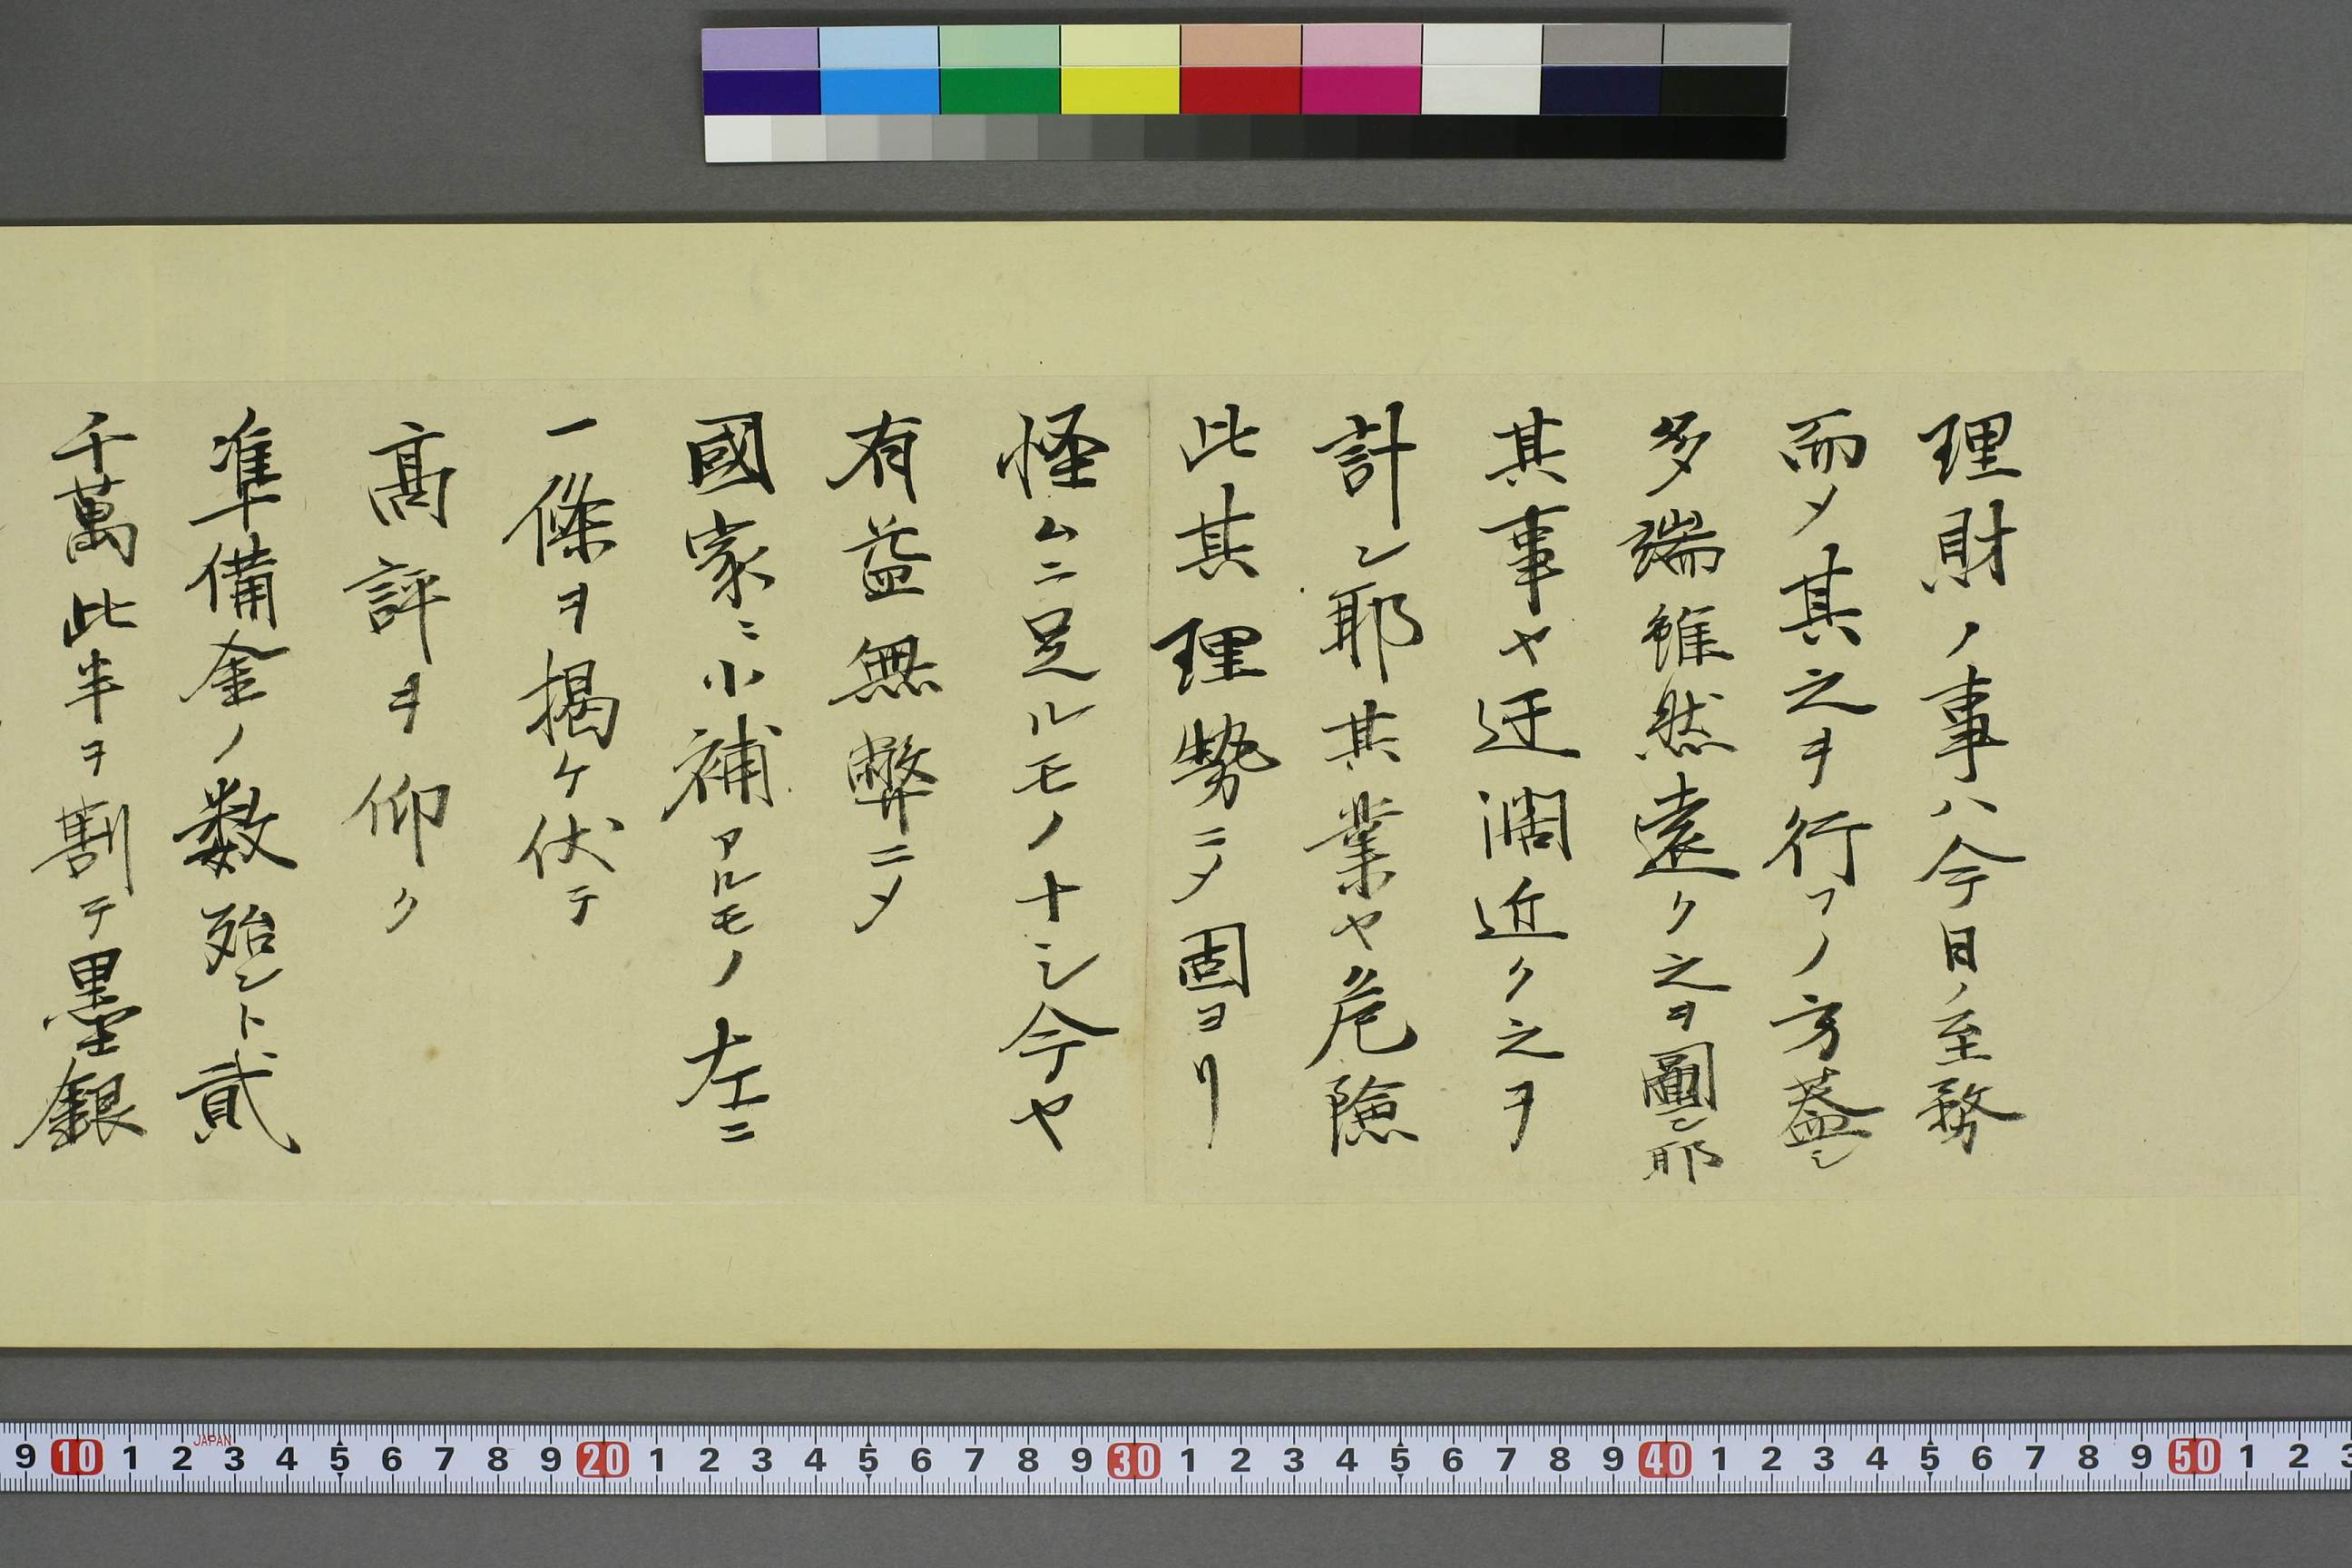 理財ノ事ハ今日ノ至務
而〆其之ヲ行フノ方蓋シ
多端雖然遠ク之ヲ圖ン耶
其事ヤ迂濶近ク之ヲ
計ン耶其業ヤ危險
此其理勢ニ〆固ヨリ
怪ムニ足ルモノナシ今ヤ
有益無弊ニ〆
國家ニ小補アルモノ左ニ
一條ヲ揭ケ伏テ
高評ヲ仰ク
準備金ノ数殆ント貳
千萬此半ヲ割テ墨銀
9 10 1 2 3 4 5 6 7 8 9 20 1 2 3 4 5 6 7 8 9 30 1 2 3 4 5 6 7 8 9 40 1 2 3 4 5 6 7 8 9 50 1 2 3
JAPAN